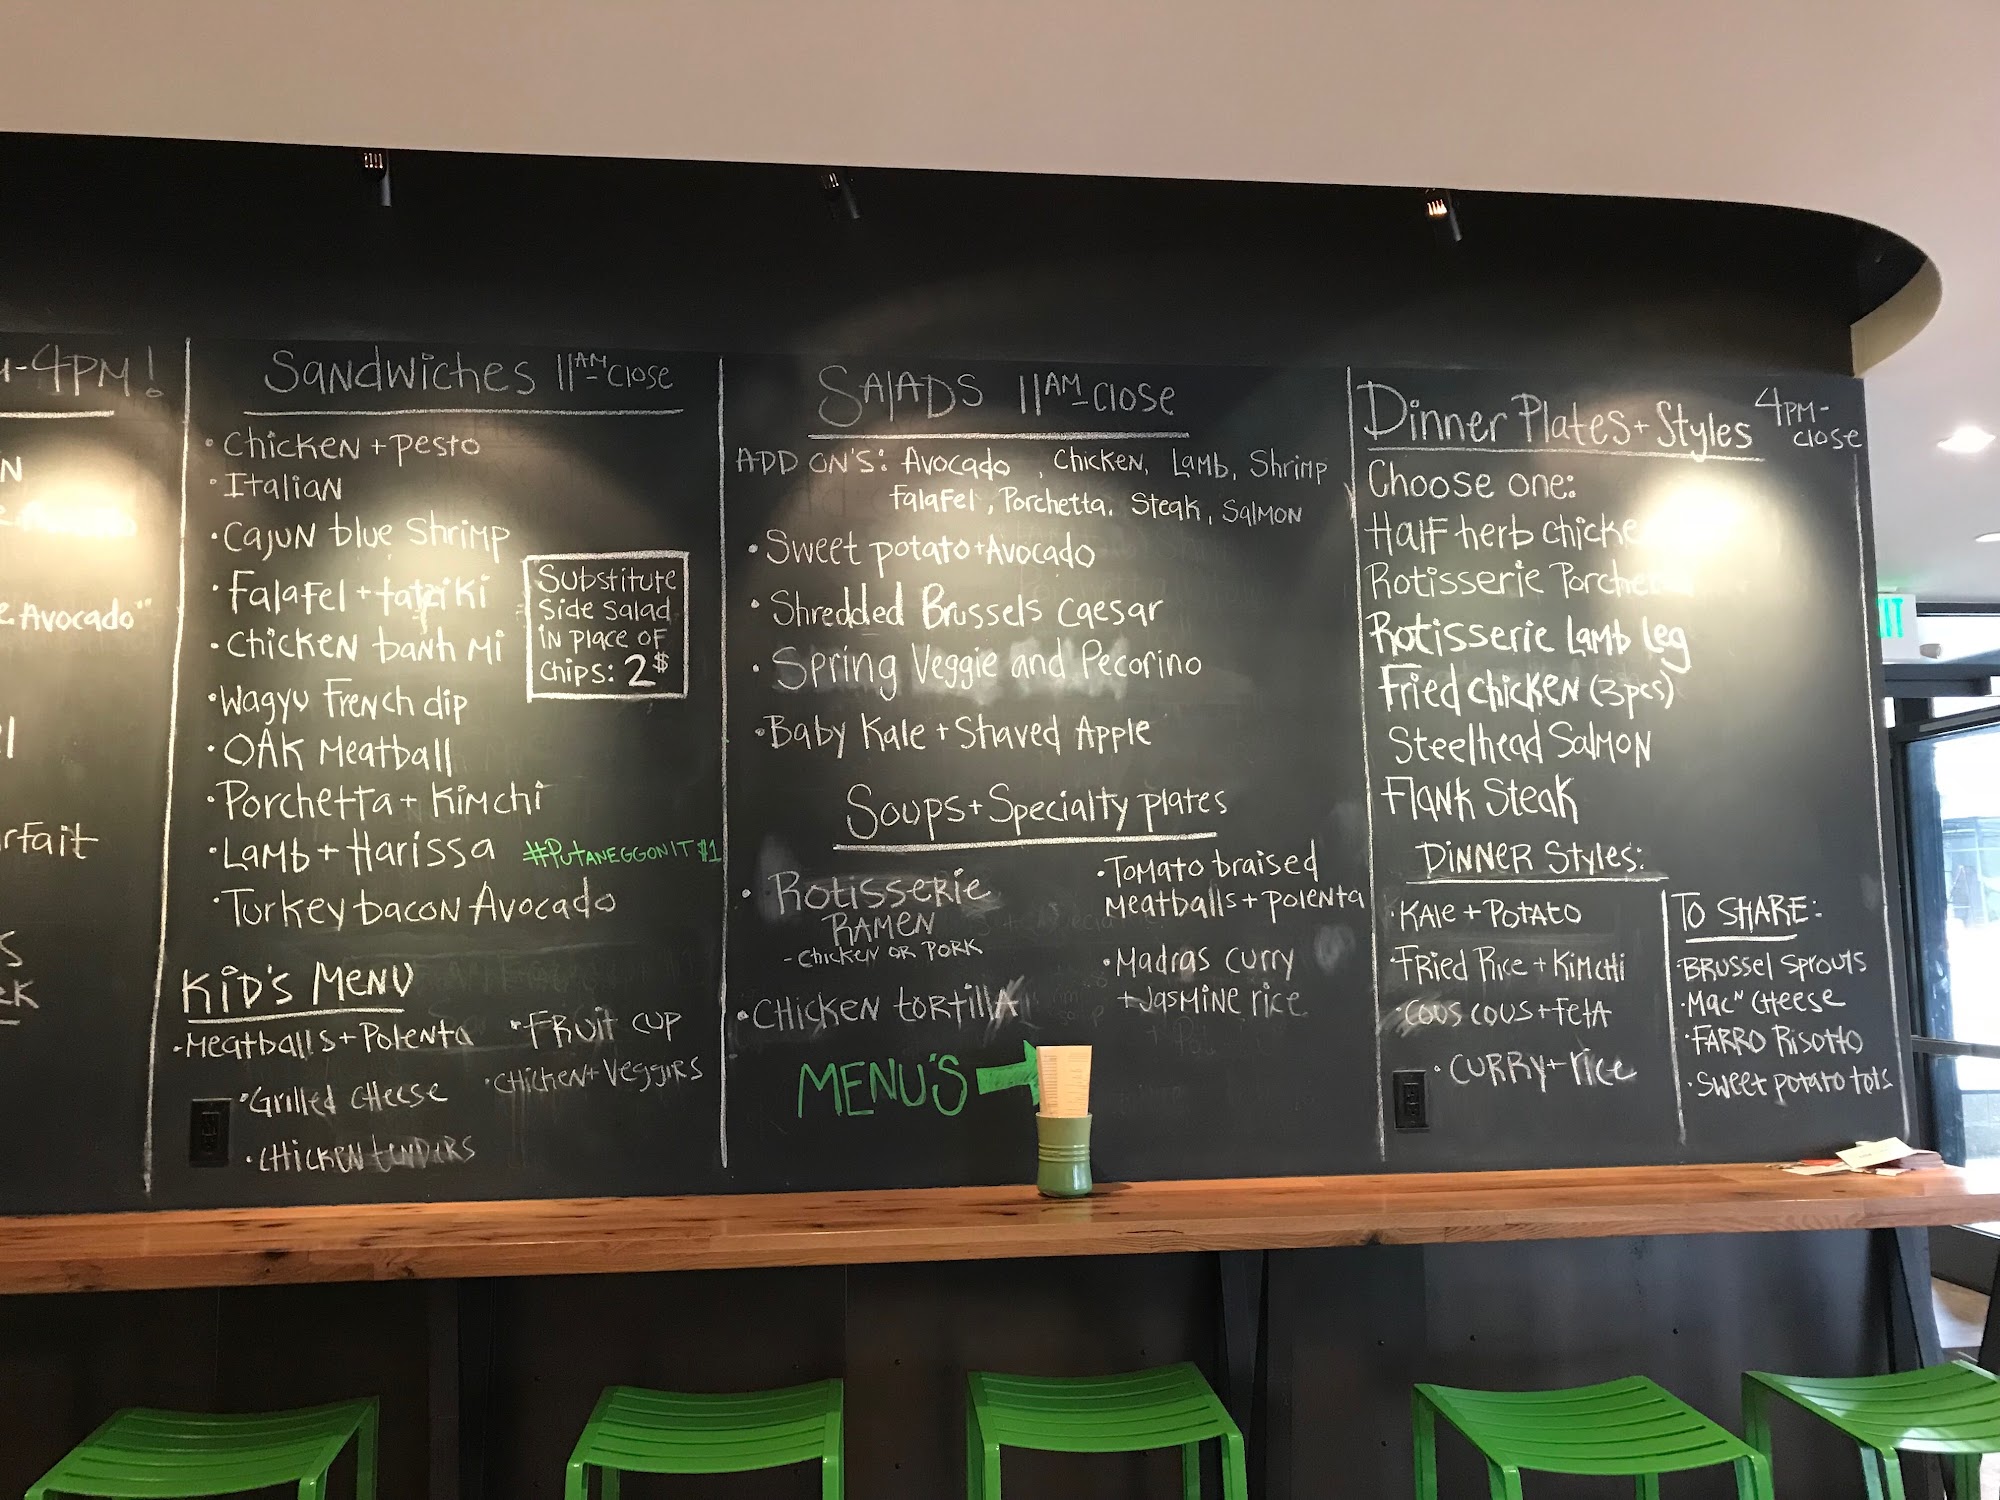 -4PM!
N
Avocado"
rfait
S
Sandwiches 11AM-Close
• Chicken + pesto
• Italian
• Cajun blue Shrimp
• Falafel + tatziki
• Chicken banh Mi
• Wagyu French dip
• OAK Meatball
• Porchetta + Kimchi
• Lamb + Harissa
#PUTANEGGONIT $1
• Turkey bacon Avocado
Substitute
Side Salad
in place of
chips: 2$
Kid's Menu
• Meatballs + Polenta
• Grilled Cheese
• Chicken tenders
• Fruit cup
• Chicken + Veggies
Salads 11AM-Close
ADD ON'S: Avocado, Chicken, Lamb, Shrimp
Falafel, Porchetta. Steak, Salmon
• Sweet potato + Avocado
• Shredded Brussels Caesar
• Spring Veggie and Pecorino
• Baby Kale + Shaved Apple
Soups + Specialty plates
• Rotisserie
Ramen
- Chicken or Pork
• Chicken tortilla
• Tomato braised
Meatballs + polenta
• Madras curry
+ Jasmine rice
MENU'S
Dinner Plates + Styles 4PM-Close
Choose one:
Half herb chicke
Rotisserie Porchetta
Rotisserie Lamb Leg
Fried Chicken (3pcs)
Steelhead Salmon
Flank Steak
Dinner Styles:
• Kale + Potato
• Fried Rice + Kimchi
• Cous cous + Feta
• Curry + rice
To Share:
• Brussel Sprouts
• Mac N' Cheese
• Farro Risotto
• Sweet potato tots
IT